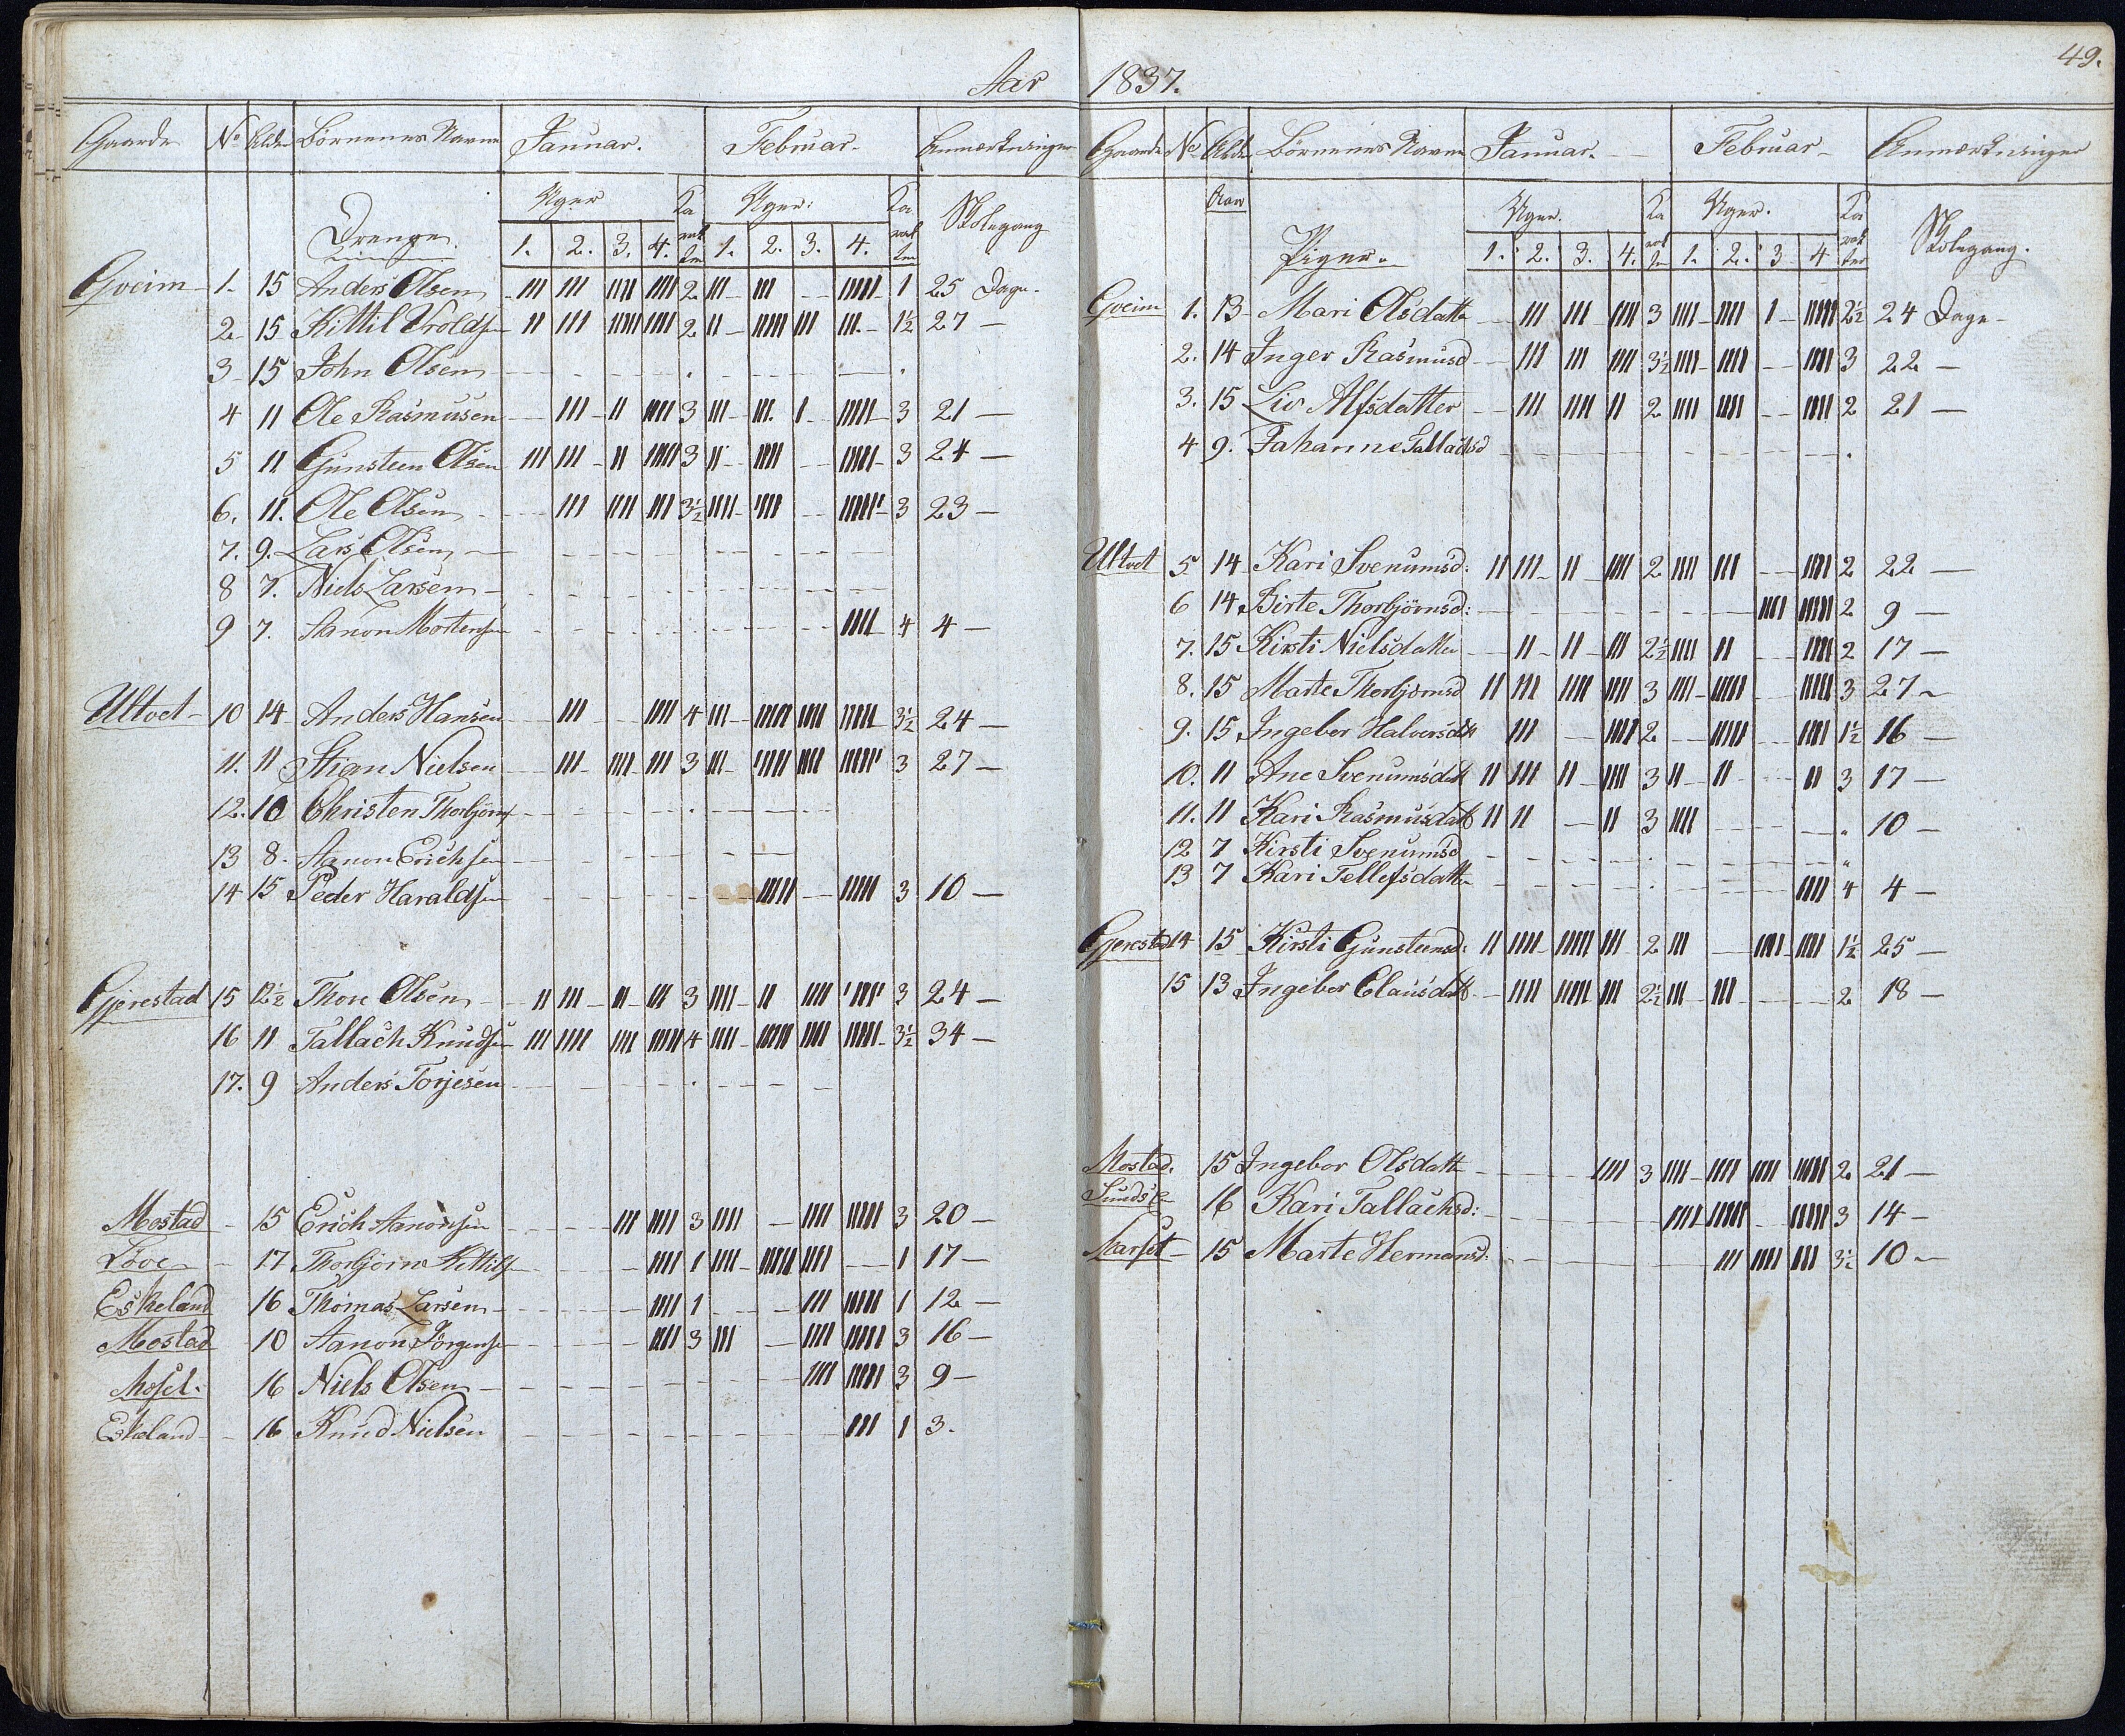 Aar 1837.
49.
Gaarde No Alder Börnenes Navne Januar. Februar. Anmærkninger
Uger Ka rak ter Uger: Ka rak ter Skolegang
Drenge. 1. 2. 3. 4. 1. 2. 3. 4.
Gveim 1. 15 Anders Olsen III III IIII IIII 2 III III IIIII 1 25 Dage.
2 15 Kittil Vroldsen II III IIIII IIII 2 II IIIII III III 1½ 27 —
3 15 John Olsen
4 11 Ole Rasmusen III II IIII 3 III III. I IIIII 3 21 —
5 11 Gunsteen Olsen III III II IIIII 3 II IIII IIIII 3 24 —
6. 11. Ole Olsen III IIII III 3½ IIII IIII IIIIII 3 23 —
7. 9. Lars Olsen
8 7. Niels Larsen
9 7. Aanon Mortensen IIII 4 4 —
Ultvet 10 14 Anders Hansen III IIII 4 III IIIII IIII IIIII 3½ 24 —
11. 11 Stian Nielsen III IIII III 3 III IIIII IIII IIIIII 3 27 —
12. 10 Christen Thorbjörns
13 8. Aanon Erichsen
14 15 Peder Haraldsen IIIII IIIII 3 10 —
Gjerestad 15 12½ Thore Olsen II III II III 3 IIII II IIII IIIII 3 24 —
16 11 Tallach Knudsen III IIII IIII IIIII 4 IIII IIIII IIII IIIII 3½ 34 —
17. 9 Anders Torjesen
Mostad 15 Erich Aanonsen III IIII 3 IIII IIII IIIII 3 20 —
Löve 17 Thorbjörn Kittils IIII 1 IIII IIIII IIII 1 17 —
Eskeland 16 Thomas Larsen IIII 1 III IIIII 1 12 —
Mostad 10 Aanon Jörgensen IIII 3 III IIII IIIII 3 16 —
16 Niels Olsen IIII IIIII 3 9 —
Eskeland 16 Knud Nielsen III 1 3.
Gaarde No Alder Börnenes Navne Januar. Februar Anmærkninger
Aar Uger. Ka rak ter Uger. Ka rak ter Skolegang.
Piger. 1. 2. 3. 4. 1. 2. 3 4
Gveim 1. 13 Mari Olsdatter III III IIII 3 IIII IIII I IIIII 2½ 24 Dage —
2. 14 Inger Rasmusd III III IIII 3½ IIII IIII IIII 3 22 —
3. 15 Liv Alfsdatter III IIII II 2 IIII IIII IIII 2 21 —
4 9. Johanne Tallachsd
Ultvet 5 14 Kari Svenumsd: II III II IIII 2 IIII III IIII 2 22 —
6 14 Birte Thorbjörnsd: IIII IIIII 2 9 —
7. 15 Kirsti Nielsdatter II II III 2½ IIII II IIII 2 17 —
8. 15 Marte Thorbjörnsd II III IIII IIII 3 IIII IIIII IIIII 3 27 —
9. 15 Ingebor Halvorsdtr III IIII 2 IIII IIII 1½ 16 —
10. 11 Ane Svenumsdatt II III II IIII 3 II II II 3 17 —
11. 11 Kari Rasmusdatt II II II 3 IIII 10 —
12 7 Kirsti Svenumsd
13 7 Kari Tellefsdatter IIII 4 4 —
Gjerestad 14 15 Kirsti Gunsteensd: II IIII IIIII III 2 III IIII IIII 1½ 25 —
15 13 Ingebor Clausdatt IIII IIIII III 2½ III III 2 18 —
Mostad. 15 Ingebor Olsdatter IIII 3 IIII IIII IIII IIIII 2 21 —
16 Kari Tallachsd: IIII IIIII IIIII 3 14 —
15 Marte Hermansd: III IIII III 3½ 10 —